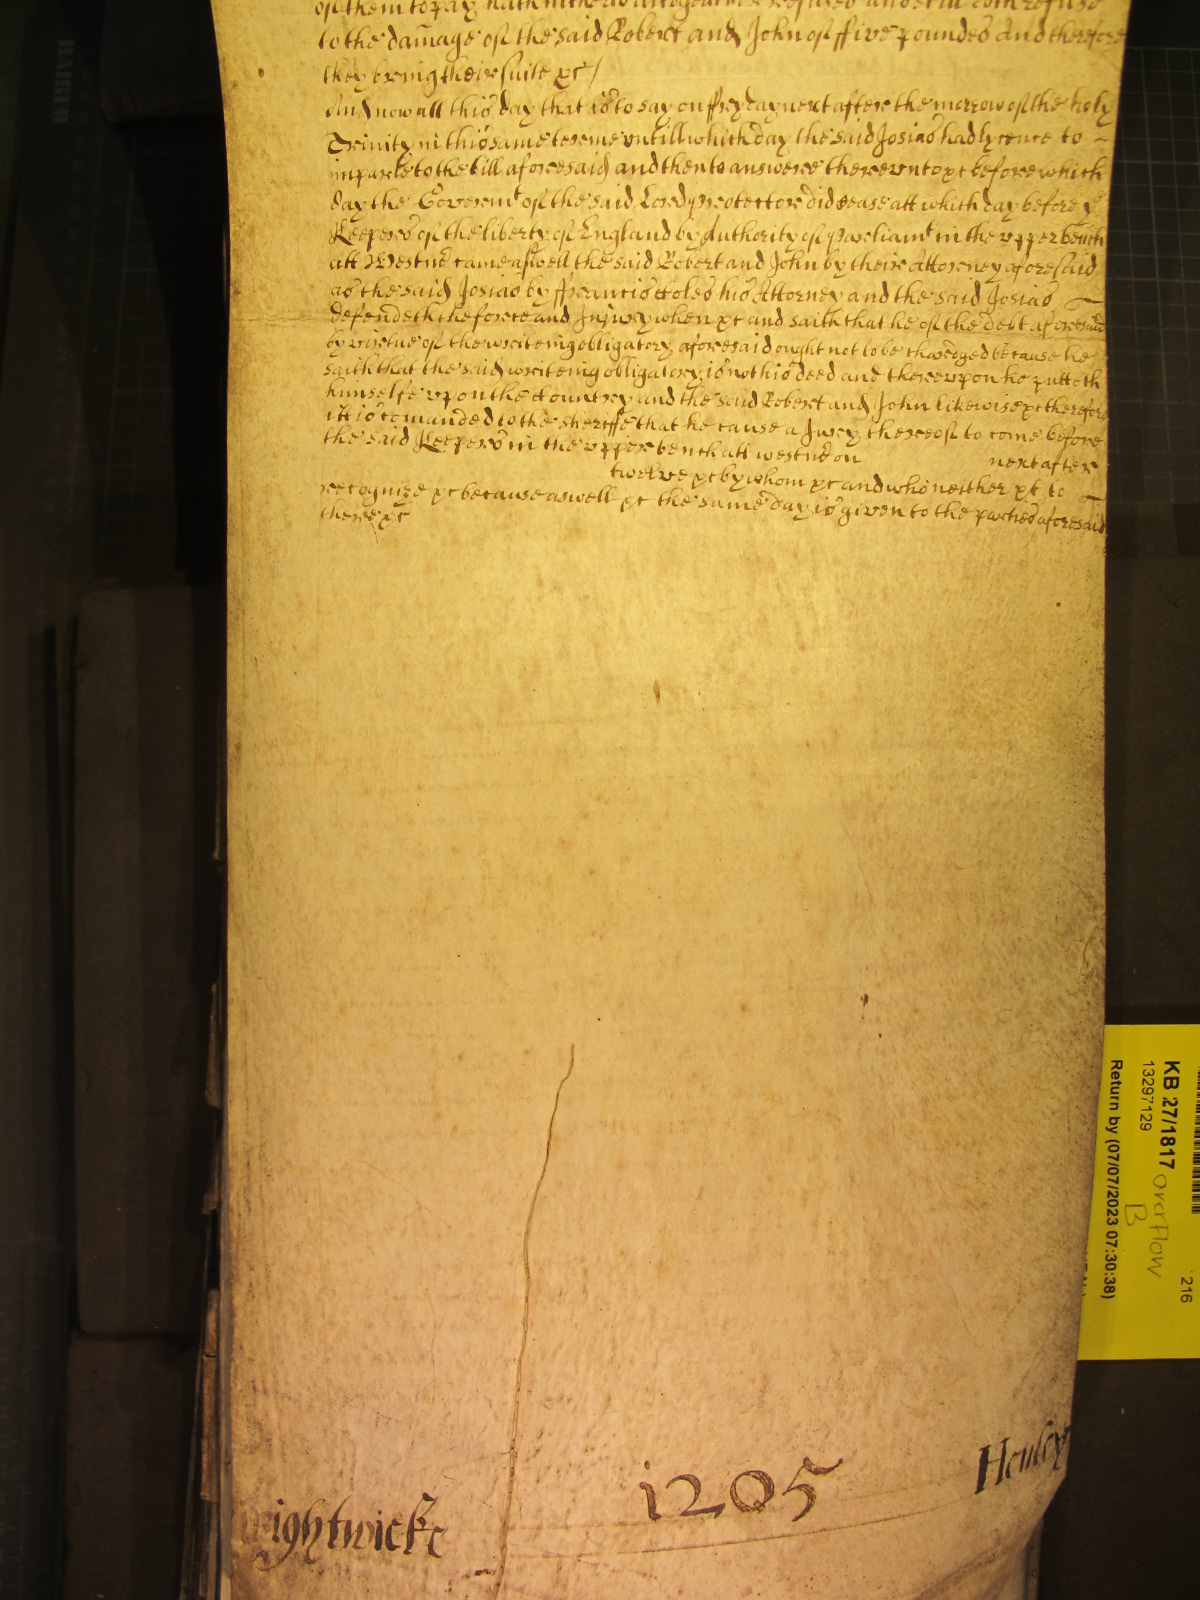 of them to pay hath hitherto altogeather refused and still doth refuse
to the damage of the said Robert and John of ffive poundes And therefore
they bring their suite &c /
And now att this day that is to say on ffryday next after the morrow of the holy
Trinity in this same terme untill which day the said Josias had lycence to
imparle to the bill aforesaid and then to answere thereunto &c before which
day the Governmt of the said Lord Protector did cease att which day before ye
Keepers of the liberty of England by Authority of Parliamt in the upper bench
att Westmr came aswell the said Robert and John by their Attorney aforesaid
as the said Josias by ffrancis Coles his Attorney and the said Josias
defendeth the force and Injury when &c and saith that he of the debt aforesaid
by virtue of the writeing obligatory aforesaid ought not to be charged because he
saith that the said writeing obligatory is not his deed and thereupon he putteth
himselfe upon the Country and the said Robert and John likewise &c therefore
itt is comanded to the sheriffe that he cause a Jury thereof to come before
the said Keepers in the upper bench att westmr on next after
twelve &c by whom &c and who neither &c to
recognize &c because aswell &c the same day is given to the parties aforesaid
there &c
KAISER
KB 27/1817
13297129
overflow
B
216
Return by (07/07/2023 07:30:38)
Henley
1205
ightwicke